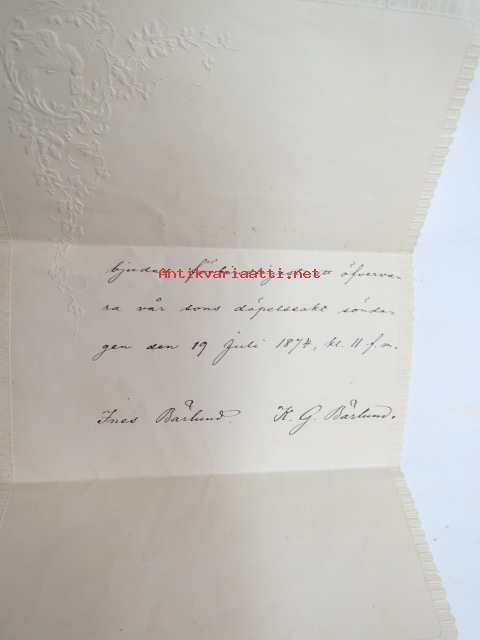 bjuda
Antikvariaatti.net
öfverva-
ra vår sons döpelseakt sönda-
gen den 19 Juli 1874, kl. 11 f.m.
Ines Bärlund. K. G. Bärlund.